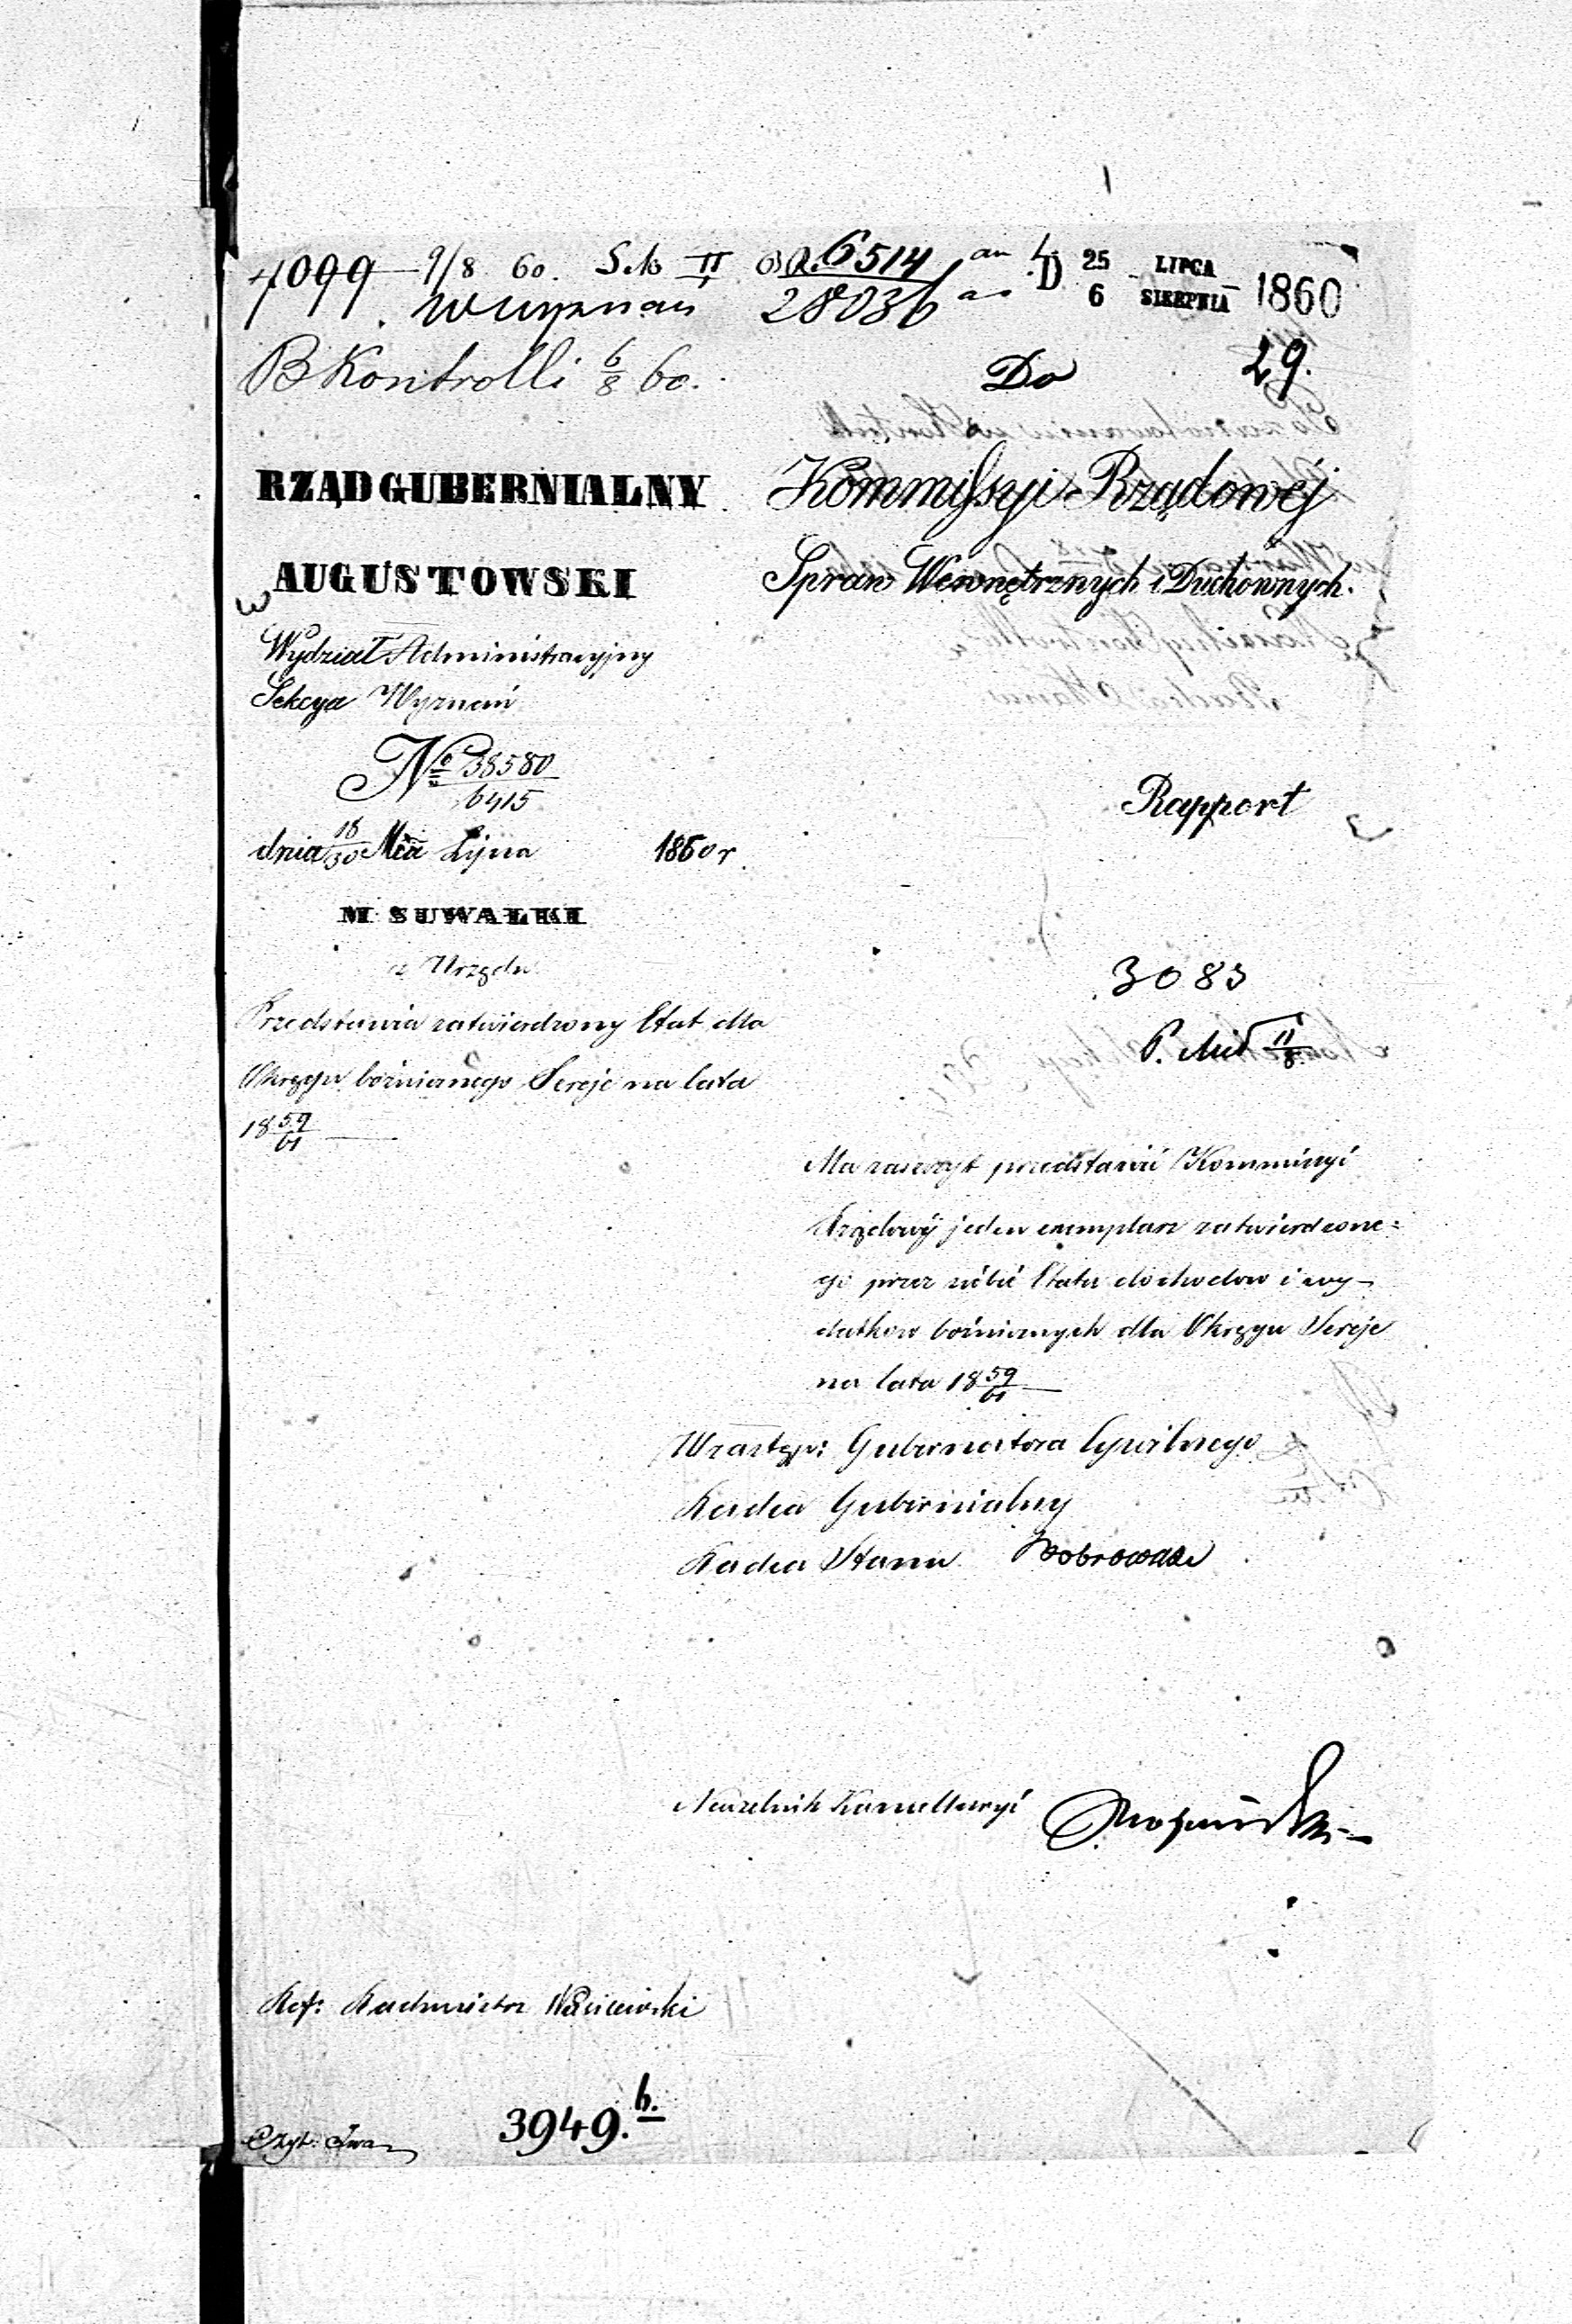 7099 9/8 60. Sek II 6514 / 28036 D 25 LIPCA / 6 SIERPNIA 1860
Wyznań
B Kontrolli 6/8 60.
29.
Do
RZĄD GUBERNIALNY
AUGUSTOWSKI
Kommissyi Rządowéj
Spraw Wewnętrznych i Duchownych.
Wydział Administracyjny
Sekcya Wyznań
No 38580 / 6415
dnia 18/30 Mca Lipca 1860 r.
M SUWAŁKI
z Urzędu
Przedstawia zatwierdzony Etat dla
Okręgu bóżniczego Sereje na lata
18 59/61
Rapport
3083
11/8
Ma zaszczyt przedstawić Kommissyi
Rządowéj jeden exemplarz zatwierdzone=
go przez siebie Etatu dochodów i wy-
datków bóżniczych dla Okręgu Sereje
na lata 18 59/61
W zastęp: Gubernatora Cywilnego
Radca Gubernialny
Radca Stanu
Naczelnik Kancellaryi
Ref: Rachmistrz
Czyt:
3949. b.